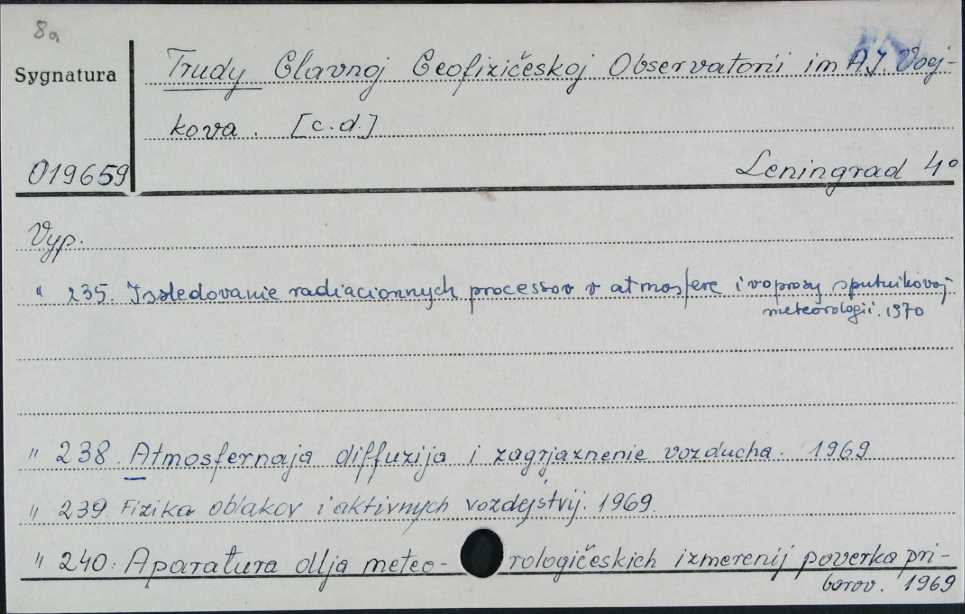 8a
Sygnatura
Trudy Glavnoj Geofizičeskoj Observatorii im A.J. Voej-
kova. [c.d.]
019659
Leningrad 4°
Vyp.
" 235. Issledovanie radiacionnych processov v atmosfere i voprosy sputnikovoj
meteorologii. 1970
" 238. Atmosfernaja diffuzija i zagrjaznenie vozducha. 1969
" 239. Fizika oblakov i aktivnych vozdejstvij. 1969.
" 240. Aparatura dlja meteo-rologičeskich izmerenij poverka pri-
borov. 1969